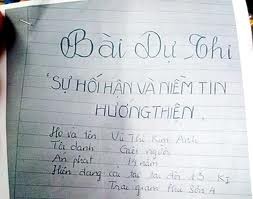 Bài Dự Thi
"SỰ HỐI HẬN VÀ NIỀM TIN
HƯỚNG THIỆN
Họ và tên Vũ Thị Kim Anh
Tội danh Giết người
Án phạt 14 năm
Hiện đang cải tạo tại đội 13 K1
Trại giam Phú Sơn 4